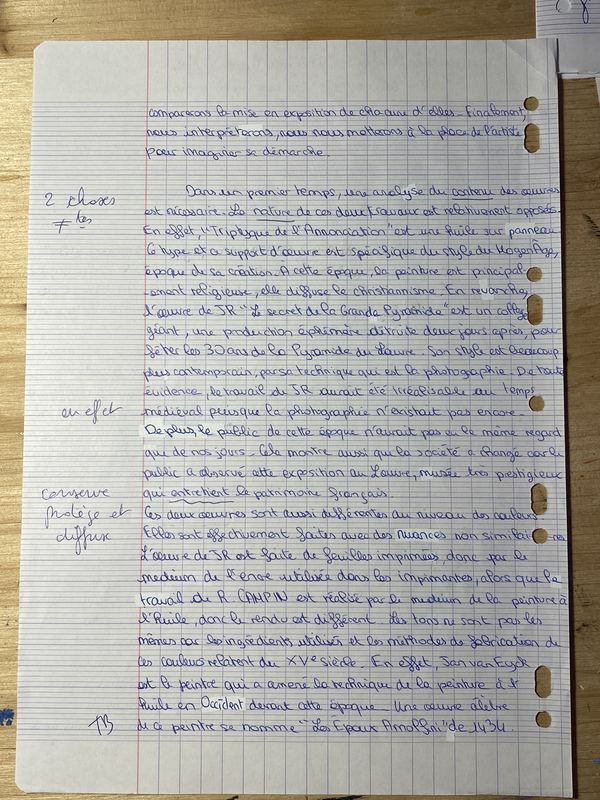 comparerons la mise en exposition de chacune d'elles. Finalement,
nous interpréterons, nous nous metterons à la place de l'artiste
pour imaginer sa démarche.
2 choses
≠tes
Dans un premier temps, une analyse du contenu des œuvres
est nécessaire. La nature de ces deux travaux est relativement opposée.
En effet, "Triptyque de l'Annonciation" est une huile sur panneau
Ce type et ce support d'œuvre est spécifique du style du Moyen Âge,
époque de sa création. A cette époque, la peinture est principal
-ement religieuse, elle diffuse le christianisme. En revanche,
l'œuvre de JR "Le secret de la Grande Pyramide" est un collage
géant, une production éphémère détruite deux jours après, pour
fêter les 30 ans de la Pyramide du Louvre. Son style est beaucoup
plus contemporain, par sa technique qui est la photographie. De toute
évidence, le travail de JR aurait été irréalisable au temps
en effet
médiéval puisque la photographie n'existait pas encore.
De plus, le public de cette époque n'aurait pas eu le même regard
qui de nos jours. Cela montre aussi que la société a changé car le
public a observé cette exposition au Louvre, musée très prestigieux
conserve
protège et
diffuse
qui entretient le patrimoine français.
Ces deux œuvres sont aussi différentes au niveau des couleurs.
Elles sont effectivement faites avec des nuances non similaires
L'œuvre de JR est faite de feuilles imprimées, donc par le
medium de l'encre utilisée dans les imprimantes, alors que le
travail de R. CAMPIN est réalisé par le medium de la peinture à
l'huile, donc le rendu est différent. Les tons ne sont pas les
mêmes car les ingrédients utilisés et les méthodes de fabrication de
ces couleurs relatent du XVe siècle. En effet, Jan van Eyck
est le peintre qui a amené la technique de la peinture à l'
huile en Occident durant cette époque. Une œuvre célèbre
TB
de ce peintre se nomme "Les Époux Arnolfini" de 1434.